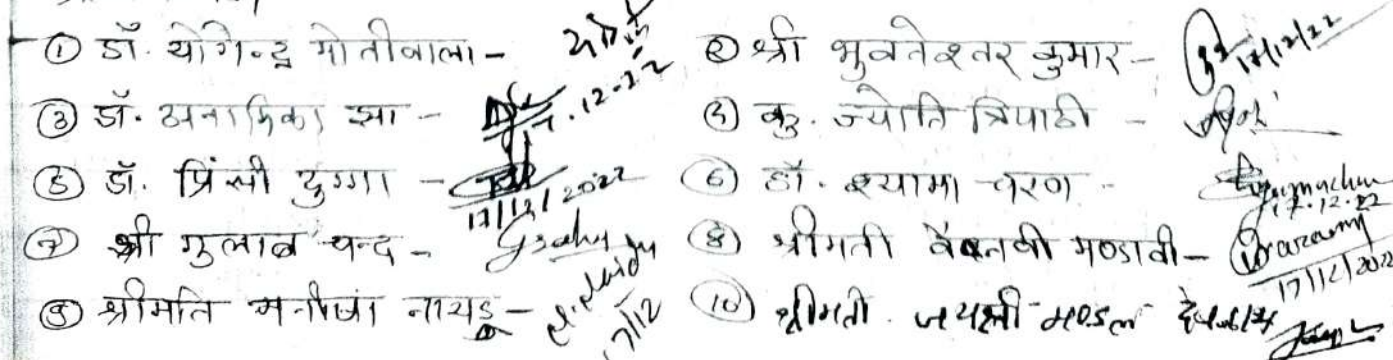 ① डॉ. योगेन्द्र मोतीवाला - ② श्री भुवनेश्वर कुमार - 17/12/22
③ डॉ. अनामिका झा - 17.12.22 ④ कु. ज्योति त्रिपाठी -
⑤ डॉ. प्रिंसी दुग्गा - 17/12/2022 ⑥ डॉ. श्यामा चरण - 17.12.22
⑦ श्री गुलाब चन्द - ⑧ श्रीमती वैष्णवी मण्डावी - 17/12/2022
⑨ श्रीमति मनीषा नायडू - 17/12 ⑩ श्रीमती जयश्री मण्डल